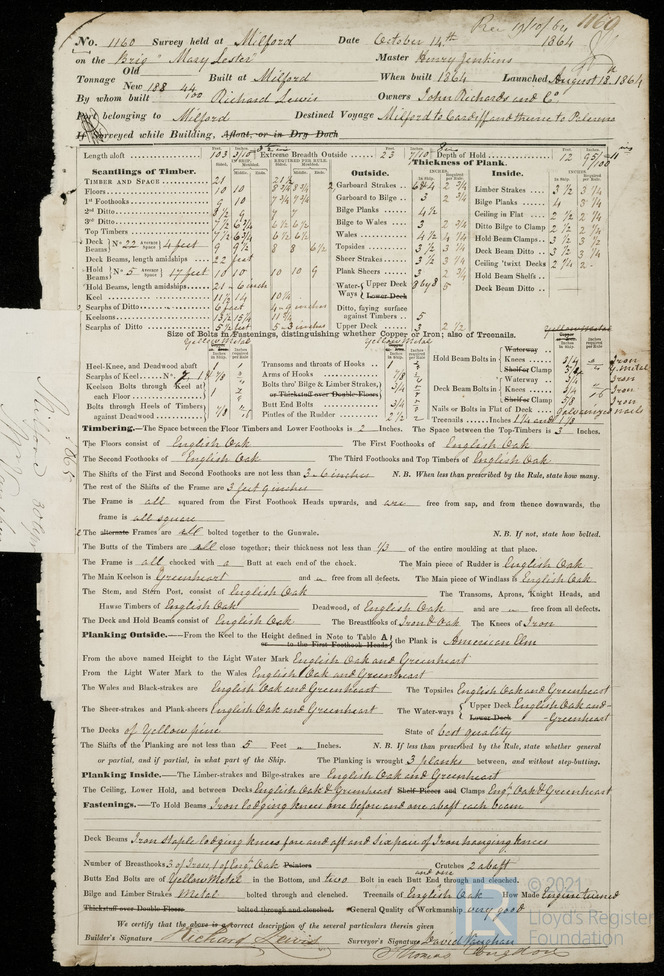 Rec 19/10/64 1160
No. 1160 Survey held at Milford Date October 14th 1864
on the Brig "Mary Lester" Master Henry Jenkins
Tonnage Old New 188 44/100 Built at Milford When built 1864 Launched August 18th 1864
By whom built Richard Lewis Owners John Richards and Co.
Port belonging to Milford Destined Voyage Milford to Cardiff and thence to Palermo
If Surveyed while Building, Afloat, or in Dry Dock
Length aloft Feet. 103 Inches. Extreme Breadth Outside Feet. 23 Inches. Depth of Hold Feet. 12 Inches.
Scantlings of Timber.
Thickness of Plank.
Outside. Inside.
Timber and Space 21 21½
Floors 10 10 8¾ 8¾
1st Foothooks 9 10 7¾ 7¾
2nd Ditto 8½ 9 7 7
3rd Ditto 7½ 6¾ 6½ 6½
Top Timbers 7½ 6¾ 6½ 6½
Deck Beams No. 22 Average Space 4 feet 9 9½ 8 8 6½
Deck Beams, length amidships 22 feet
Hold Beams No. 5 Average Space 17 feet 10 10 10 10 9
Hold Beams, length amidships 21 - 6 inch
Keel 11½ 14 10¼
Scarphs of Ditto 6 feet 4-9 inches
Keelsons 13½ 15¼ 11¾
Scarphs of Ditto 5½ feet 5-3 inches
Garboard Strakes 2¾
Garboard to Bilge 3 2¾
Bilge Planks 4½
Bilge to Wales 3 2¾
Wales 4½ 4¼
Topsides 3½ 3¼
Sheer Strakes 3½ 3¼
Plank Sheers 3 2¾
Water-Ways Upper Deck 5
Lower Deck
Ditto, faying surface against Timbers 5
Upper Deck 3 2½
Limber Strakes 3½ 3¼
Bilge Planks 4 3¼
Ceiling in Flat 2½ 2¼
Ditto Bilge to Clamp 2½ 2¼
Hold Beam Clamps 3½ 3¼
Deck Beam Ditto 3½ 3¼
Ceiling 'twixt Decks 2¼ 2
Hold Beam Shelfs
Deck Beam Ditto
Size of Bolts in Fastenings, distinguishing whether Copper or Iron; also of Treenails.
Yellow Metal Yellow Metal Yellow Metal
Heel-Knee, and Deadwood abaft 1
Scarphs of Keel No. 7/8
Keelson Bolts through Keel at each Floor 1
Bolts through Heels of Timbers against Deadwood 7/8
Transoms and throats of Hooks 1
Arms of Hooks 7/8
Bolts thro' Bilge & Limber Strakes, or Thickstuff over Double Floors 3/4
Butt End Bolts 3/4
Pintles of the Rudder 2½
Hold Beam Bolts in Waterway
Knees 3/4 Iron
Shelf or Clamp Y. Metal
Deck Beam Bolts in Waterway 3/4 Iron
Knees 3/4 Iron
Shelf or Clamp 5/8 Iron
Nails or Bolts in Flat of Deck Galvanized nails
Treenails Inches 1¼ and 1⅛
Timbering.—The Space between the Floor Timbers and Lower Foothooks is 2 Inches. The Space between the Top-Timbers is 3 Inches.
The Floors consist of English Oak The First Foothooks of English Oak
The Second Foothooks of English Oak The Third Foothooks and Top Timbers of English Oak
The Shifts of the First and Second Foothooks are not less than 3-6 inches N.B. When less than prescribed by the Rule, state how many.
The rest of the Shifts of the Frame are 3 feet 9 inches
The Frame is all squared from the First Foothook Heads upwards, and are free from sap, and from thence downwards, the
frame is all square
The alternate Frames are all bolted together to the Gunwale. N.B. If not, state how bolted.
The Butts of the Timbers are all close together; their thickness not less than 1/3 of the entire moulding at that place.
The Frame is all chocked with a Butt at each end of the chock. The Main piece of Rudder is English Oak
The Main Keelson is Greenheart and is free from all defects. The Main piece of Windlass is English Oak
The Stem, and Stern Post, consist of English Oak The Transoms, Aprons, Knight Heads, and
Hawse Timbers of English Oak Deadwood, of English Oak and are free from all defects.
The Deck and Hold Beams consist of English Oak The Breasthooks of Iron & Oak The Knees of Iron
Planking Outside.—From the Keel to the Height defined in Note to Table A or to the First Foothook Heads the Plank is American Elm
From the above named Height to the Light Water Mark English Oak and Greenheart
From the Light Water Mark to the Wales English Oak and Greenheart
The Wales and Black-strakes are English Oak and Greenheart The Topsides English Oak and Greenheart
The Sheer-strakes and Plank-sheers English Oak and Greenheart The Water-ways Upper Deck English Oak and Greenheart Lower Deck
The Decks of Yellow pine State of best quality
The Shifts of the Planking are not less than 5 Feet „ Inches. N.B. If less than prescribed by the Rule, state whether general
or partial, and if partial, in what part of the Ship. The Planking is wrought 3 planks between, and without step-butting.
Planking Inside.—The Limber-strakes and Bilge-strakes are English Oak and Greenheart
The Ceiling, Lower Hold, and between Decks English Oak & Greenheart Shelf Pieces and Clamps Eng. Oak & Greenheart
Fastenings.—To Hold Beams Iron lodging knees one before and one abaft each beam
Deck Beams Iron Staple lodging knees fore and aft and six pair of Iron hanging knees
Number of Breasthooks 3 of Iron, 1 of Eng. Oak Pointers Crotches 2 abaft
Butts End Bolts are of Yellow Metal in the Bottom, and two Bolt in each Butt End and one through and clenched.
Bilge and Limber Strakes Metal bolted through and clenched. Treenails of English Oak How Made Engine turned
Thickstuff over Double Floors bolted through and clenched. General Quality of Workmanship very good
We certify that the above is a correct description of the several particulars therein given
Builder's Signature Richard Lewis Surveyor's Signature David Vaughan
Thomas Congdon
© 2021
Lloyd's Register
Foundation